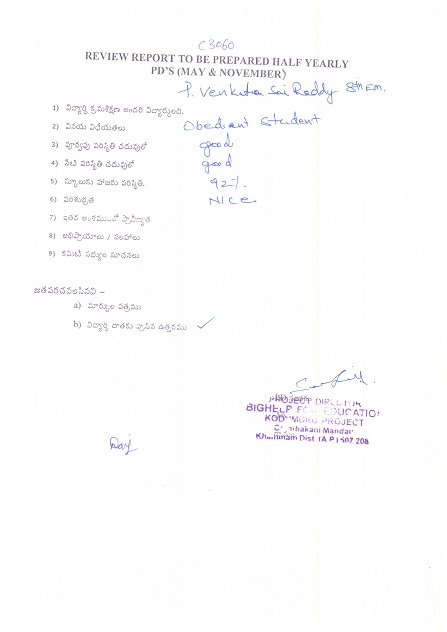 C3060
REVIEW REPORT TO BE PREPARED HALF YEARLY
PD'S (MAY & NOVEMBER)
P. Venkata Sai Reddy 8th EM.
1) విద్యార్థి క్రమశిక్షణ అందరి విద్యార్థులది.
2) వినయ విధేయతలు Obedient Student
3) పూర్వపు పరిస్థితి చదువులో good
4) నేటి పరిస్థితి చదువులో good
5) స్కూలుకు హాజరు పరిస్థితి. 92%
6) పరిశుభ్రత NICE
7) ఇతర అంశములలో ప్రావీణ్యత
8) అభిప్రాయాలు / సలహాలు
9) కమిటి సభ్యుల సూచనలు
జతపరచవలసినవి –
a) మార్కుల పత్రము
b) విద్యార్థి దాతకు వ్రాసిన ఉత్తరము ✓
PROJECT DIRECTOR
BIGHELP FOR EDUCATION
PROJECT
Mandal
Khammam Dist. (A.P.) 507 208